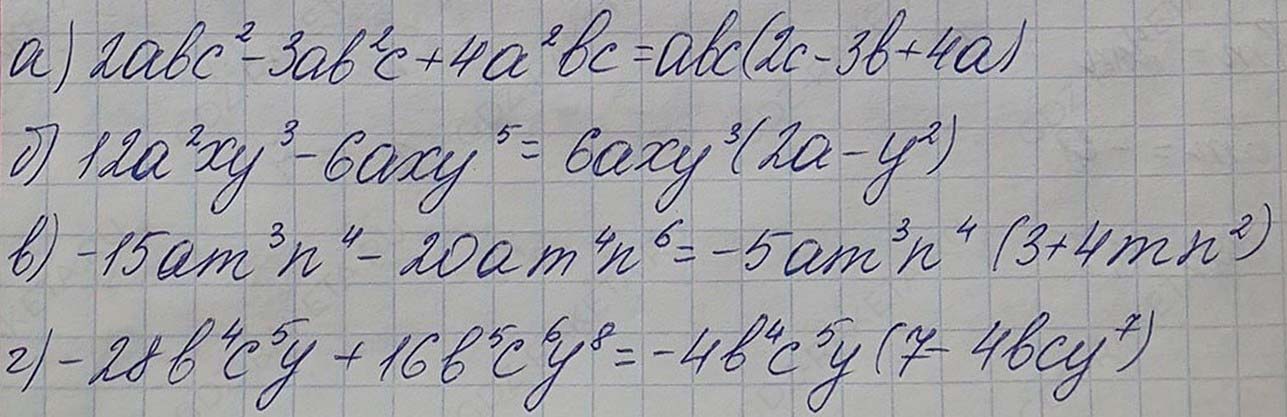 а) 2abc²-3ab²c+4a²bc=abc(2c-3b+4a)
б) 12a²xy³-6axy⁵=6axy³(2a-y²)
в) -15am³n⁴-20am⁴n⁶=-5am³n⁴(3+4mn²)
г) -28b⁴c⁵y+16b⁵c⁶y⁸=-4b⁴c⁵y(7-4bcy⁷)